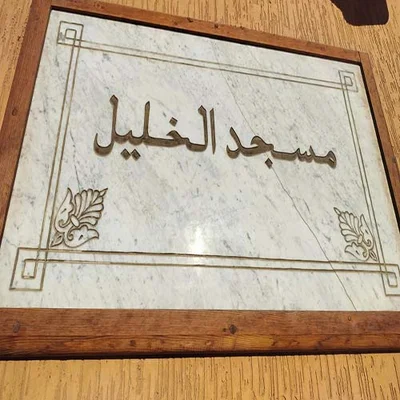 مسجد الخليل